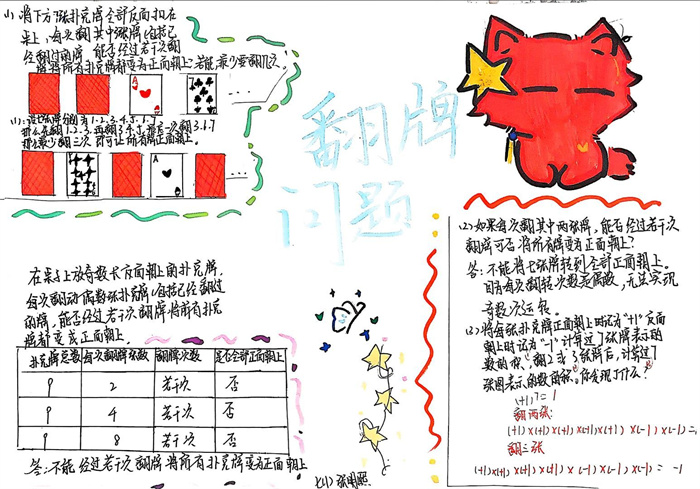 (1) 将下方7张扑克牌全部反面扣在
桌上,每次翻其中3张牌(包括已
经翻过的牌)能否经过若干次翻
牌将所有扑克牌都变为正面朝上?若能,最少要翻几次。
……
1、2、3、4、5、6、7
……
翻牌
问题
在桌子上放奇数张方面朝上的扑克牌,
每次翻动偶数张扑克牌(包括已经翻过
的牌,能否经过若干次翻牌将所有扑克
牌都变成正面朝上。
扑克牌总数 每次翻牌张数 翻牌次数 是否全部正面朝上
9 2 若干次 否
9 4 若干次 否
9 8 若干次 否
答:不能经过若干次翻牌将所有扑克牌变为正面朝上
(2)如果每次翻其中两张牌,能否经过若干次
翻牌可否将所有牌变为正面朝上?
答:不能将七张牌转到全部正面朝上。
因为每次翻转次数是偶数,无法实现
奇数次运算。
(3)将每张扑克牌正面朝上时记为"+1"反面
朝上时记为"-1"计算这7张牌表示的
数的积,翻2或3张牌后,计算这7
张图表示的数的积。你发现了什么?
(+1)⁷=1
翻两张
(+1)×(+1)×(+1)×(+1)×(+1)×(-1)×(-1)=1
翻三张
(+1)×(+1)×(+1)×(+1)×(-1)×(-1)×(-1)=-1